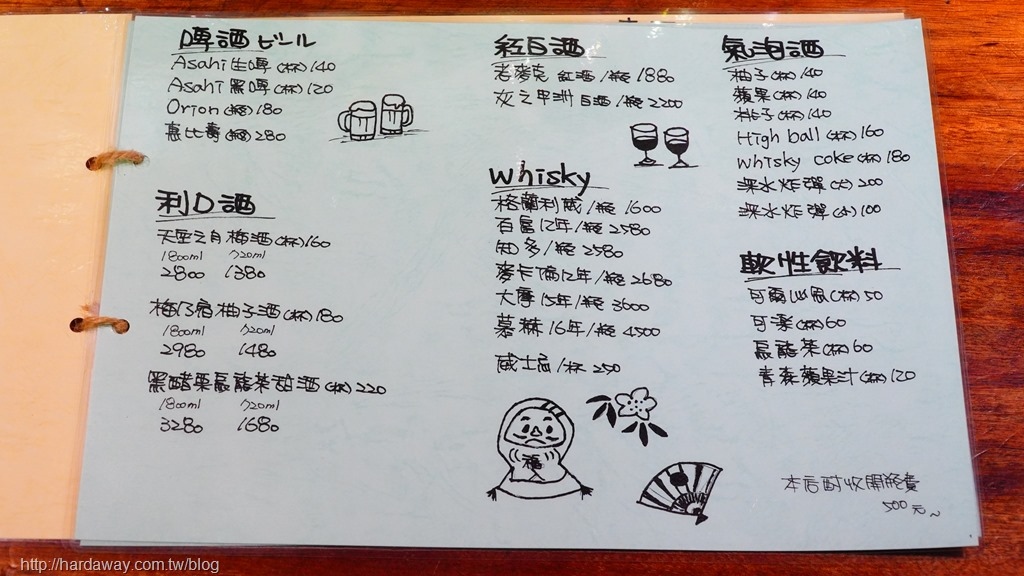 啤酒 ビール
Asahi 生啤 (杯) 140
Asahi 黑啤 (杯) 120
Orion (瓶) 180
惠比壽 (瓶) 280
利口酒
天空之月 梅酒 (杯) 160
1800ml 720ml
2800 1380
梅乃宿 柚子酒 (杯) 180
1800ml 720ml
2980 1480
黑醋栗烏龍茶甜酒 (杯) 220
1800ml 720ml
3280 1680
紅白酒
老麥克 紅酒/瓶 1880
女之甲洲 白酒/瓶 2200
whisky
格蘭利威/瓶 1600
百富12年/瓶 2580
知多/瓶 2580
麥卡倫12年/瓶 2680
大摩15年/瓶 3600
慕赫16年/瓶 4500
威士忌/杯 250
福
氣泡酒
柚子 (杯) 140
蘋果 (杯) 140
桃子 (杯) 140
High ball (杯) 160
whisky coke (杯) 180
深水炸彈 (大) 200
深水炸彈 (小) 100
軟性飲料
可爾必思 (杯) 50
可樂 (杯) 60
烏龍茶 (杯) 60
青森蘋果汁 (杯) 120
本店酌收開瓶費
500元~
http://hardaway.com.tw/blog